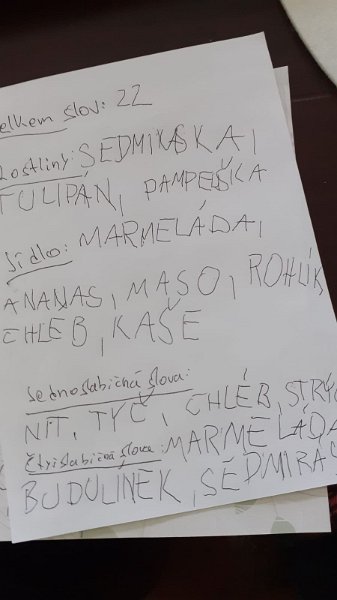 elkem slov: 22
ostliny: SEDMIKASKA,
TULIPÁN, PAMPELŠKA
Jídlo: MARMELÁDA,
ANANAS, MASO, ROHLÍK,
CHLÉB, KAŠE
Jednoslabičná slova:
NIT, TYČ, CHLÉB, STRÝ
Čtyřslabičná slova: MARMELÁDA
BUDULÍNEK, SEDMIKRAS